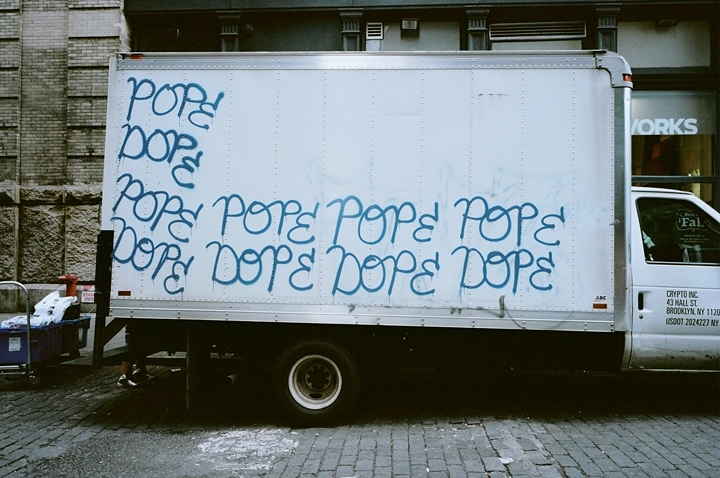 POPE
DOPE
POPE POPE POPE POPE
DOPE DOPE DOPE DOPE
WORKS
Fal
CRYPTO INC.
43 HALL ST.
BROOKLYN, NY 1120
USDOT 2024227 NY
ABC